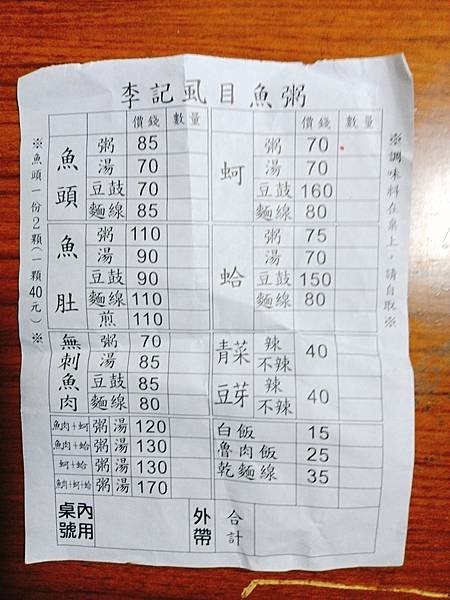 李記虱目魚粥
價錢 數量 價錢 數量
魚頭
粥 85
湯 70
豆鼓 70
麵線 85
蚵
粥 70
湯 70
豆鼓 160
麵線 80
魚肚
粥 110
湯 90
豆鼓 90
麵線 110
煎 110
蛤
粥 75
湯 70
豆鼓 150
麵線 80
無刺魚肉
粥 70
湯 85
豆鼓 85
麵線 80
青菜 辣 不辣 40
豆芽 辣 不辣 40
魚肉+蚵 粥湯 120
魚肉+蛤 粥湯 130
蚵+蛤 粥湯 130
魚肉+蚵+蛤 粥湯 170
白飯 15
魯肉飯 25
乾麵線 35
內用桌號
外帶
合計
※魚頭一份2顆(一顆40元)※
※調味料在桌上,請自取※